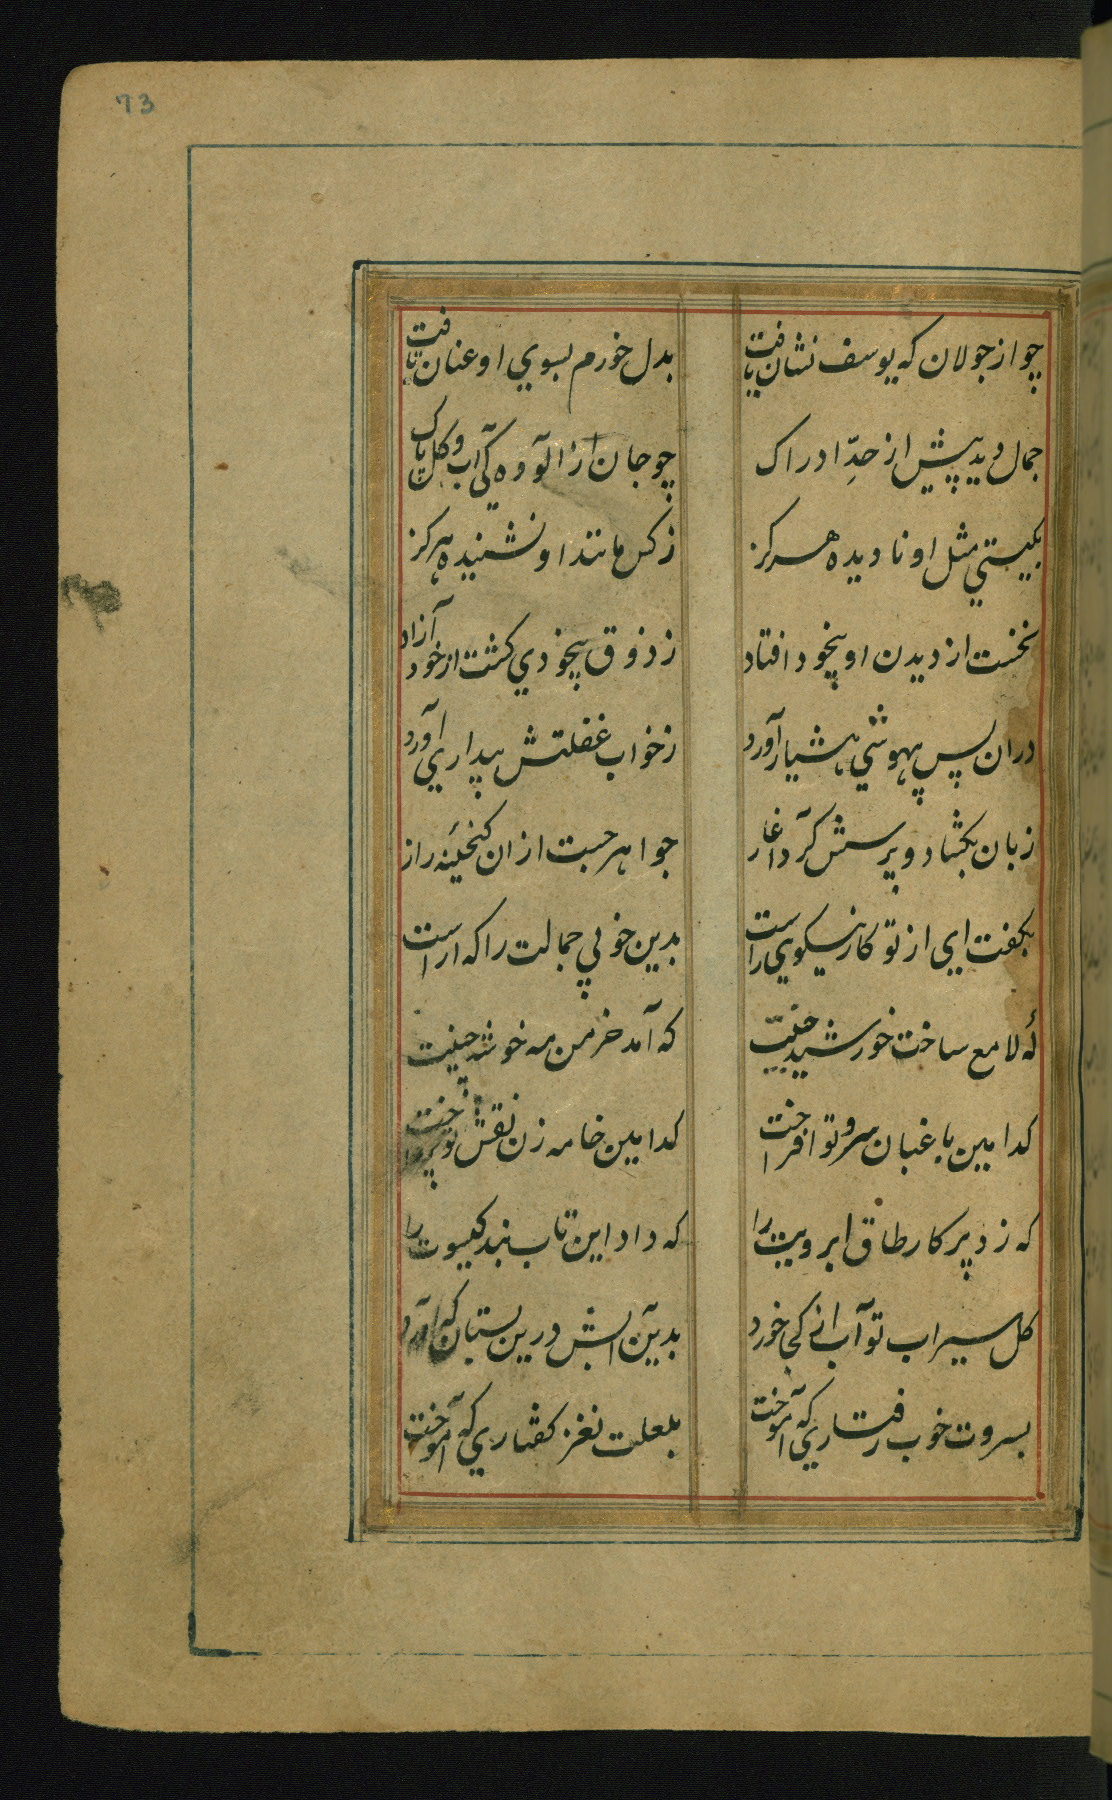 73
چو از جولان که یوسف نشان یافت
بدل خورم بسوي او عنان یافت
جمال دید پیش از حدِّ ادراک
چو جان ز آلوده کي آب و کل پاک
بکیتي مثل او نادیده هرکز
ز کس مانند او نشنیده هرکز
نخست از دیدن او بیخود افتاد
ز ذوق بیخودي کشت از خود آزاد
دران پس بیهوشي هشیار آورد
ز خواب غفلتش بیداري آورد
زبان بکشاد و پرسش کرد آغاز
جواهر جست از ان کنجینه راز
بکفت اي از تو کار نیکویي راست
بدین خوبي جمالت را که اراست
که لامع ساخت خورشید جبینت
که آمد خرمن مه خوشه چینت
کدامین باغبان سرو تو افراخت
کدامین خامه زن نقش تو پرداخت
که زد پرکار طاق ابرویت را
که داد این تاب بند کیسوت را
کل سیراب تو آب از کجا خورد
بدین آبش درین بستان که آورد
بسروت خوب رفتاري که آموخت
بلعلت نغز کفتاري که آموخت